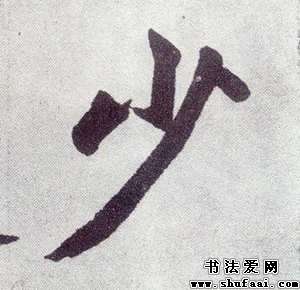 少
书法爱网
www.shufaai.com